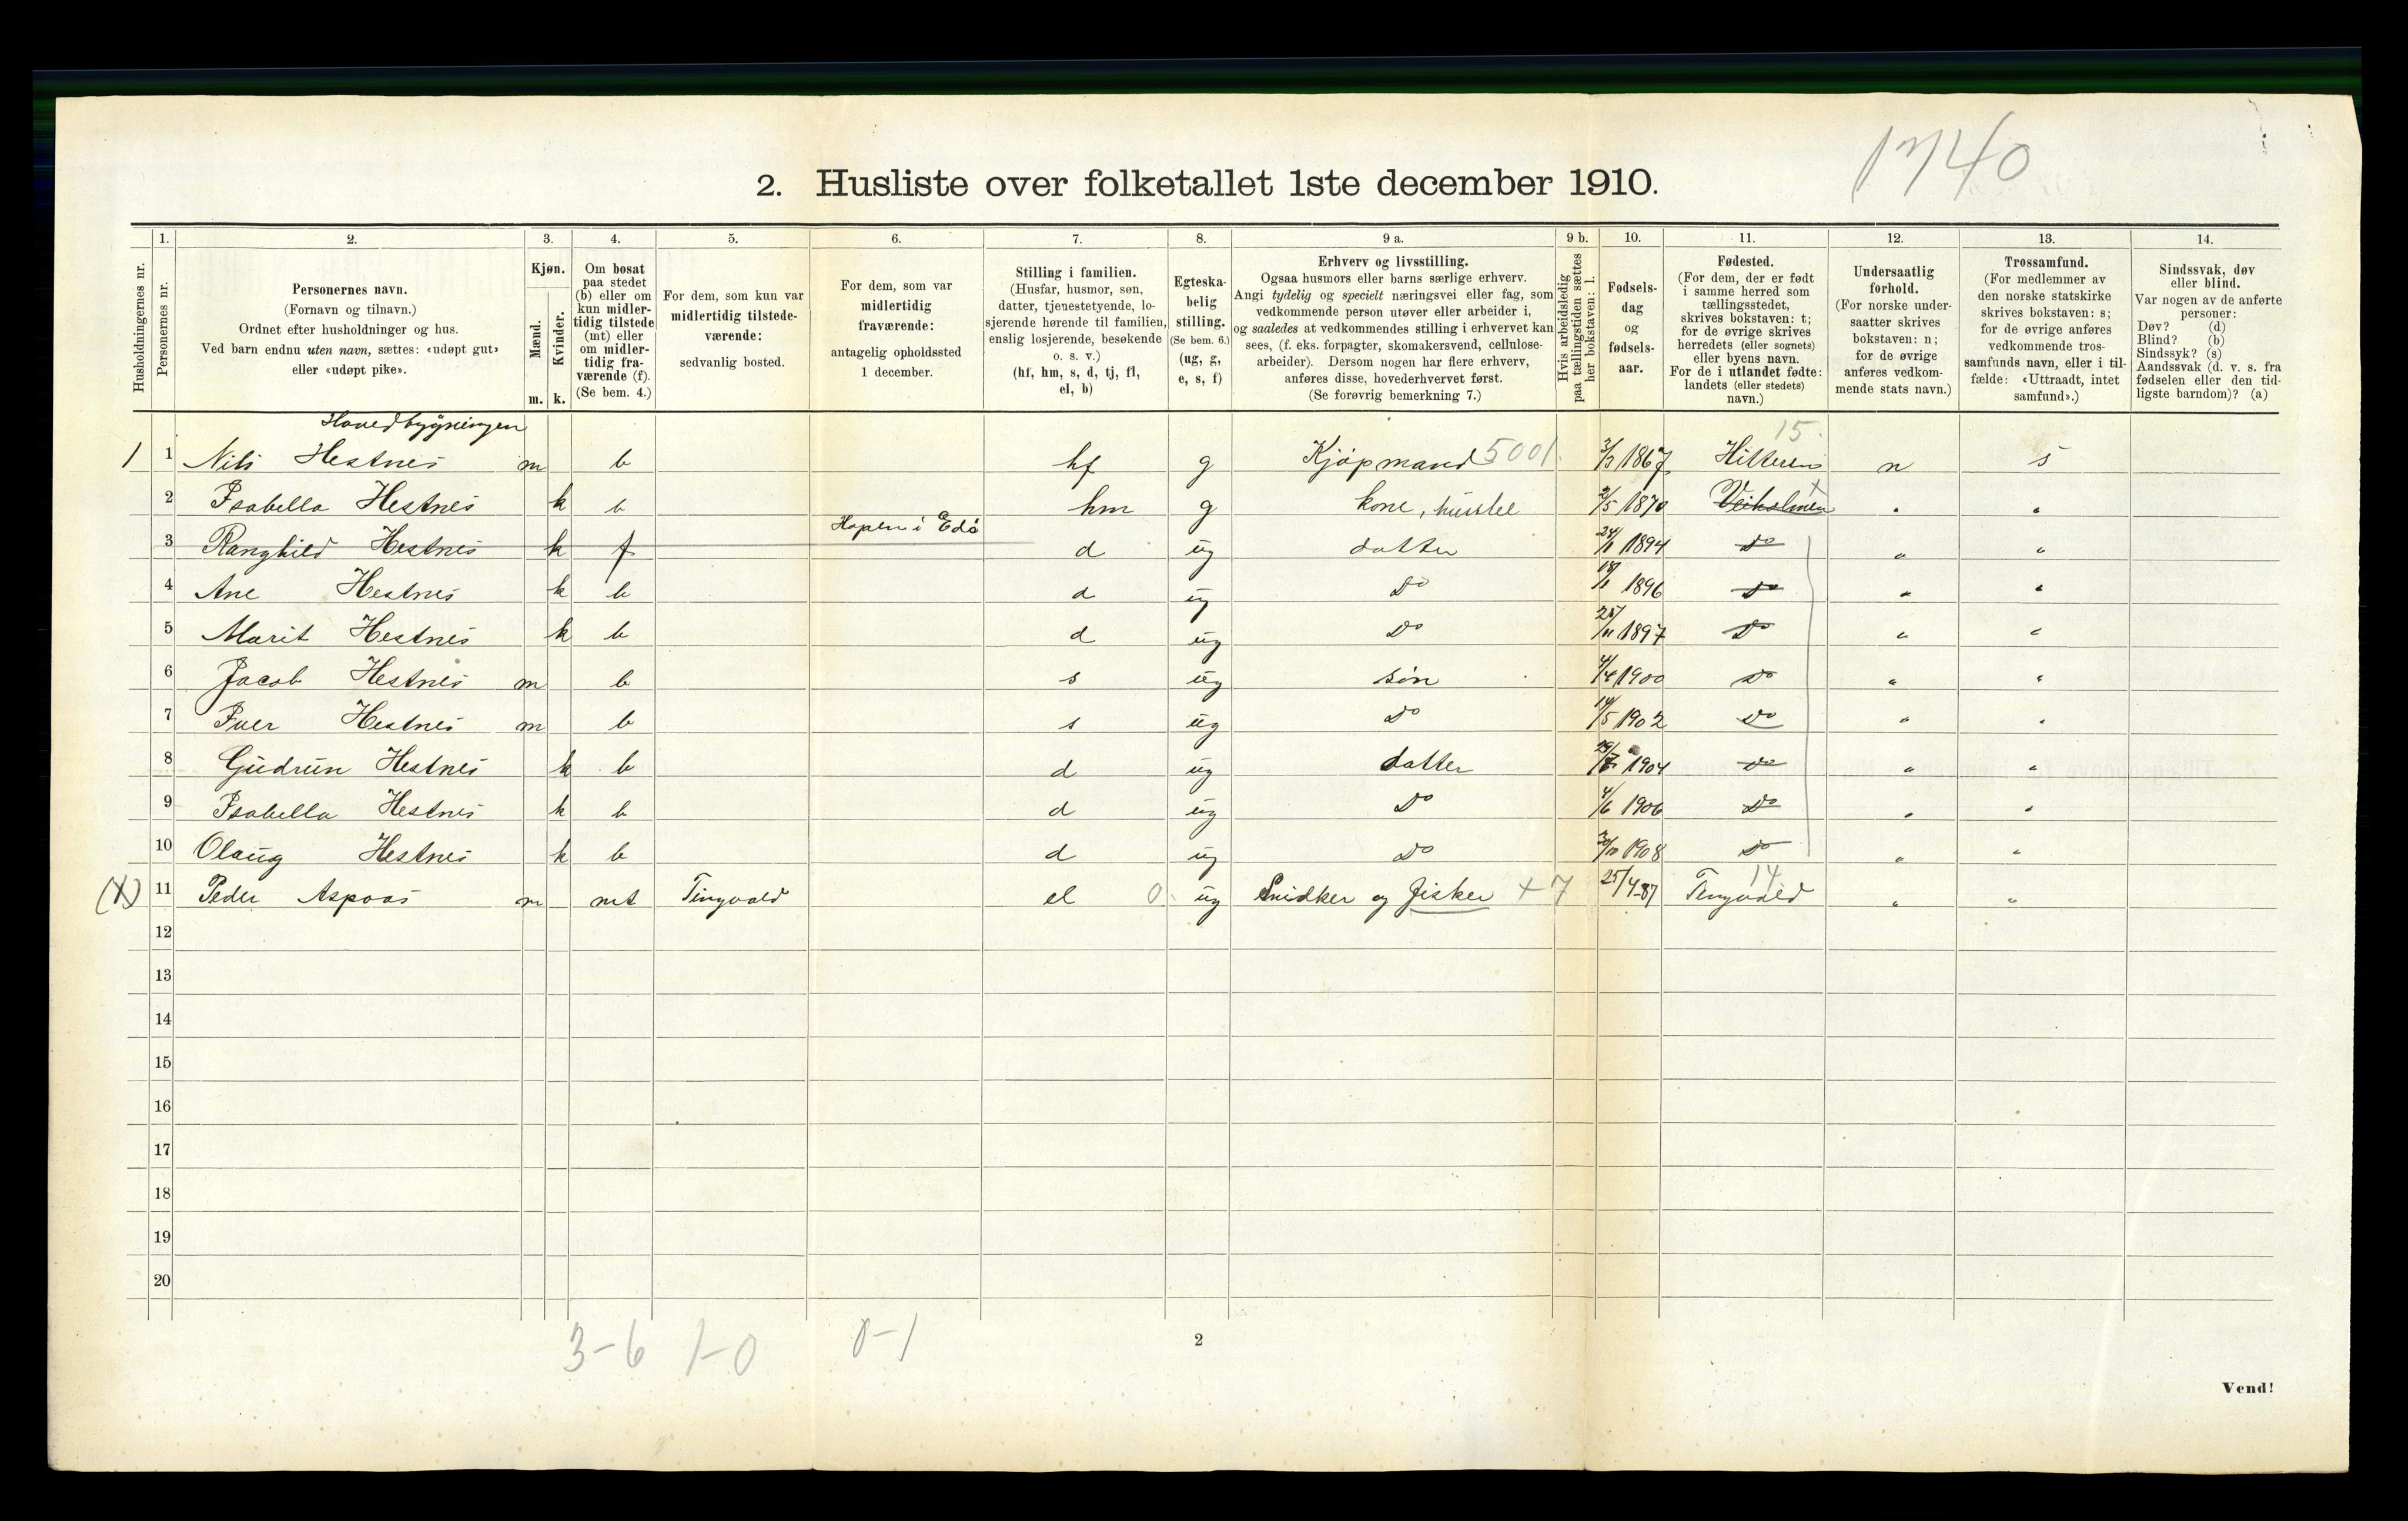 1740
2. Husliste over folketallet 1ste december 1910.
1. 2. 3. 4. 5. 6. 7. 8. 9 a. 9 b. 10. 11. 12. 13. 14.
Husholdningernes nr.
Personernes nr.
Personernes navn.
(Fornavn og tilnavn.)
Ordnet efter husholdninger og hus.
Ved barn endnu uten navn, sættes: «udøpt gut»
eller «udøpt pike».
Kjøn.
Mænd.
Kvinder.
m. k.
Om bosat
paa stedet
(b) eller om
kun midler-
tidig tilstede
(mt) eller
om midler-
tidig fra-
værende (f).
(Se bem. 4.)
For dem, som kun var
midlertidig tilstede-
værende:
sedvanlig bosted.
For dem, som var
midlertidig
fraværende:
antagelig opholdssted
1 december.
Stilling i familien.
(Husfar, husmor, søn,
datter, tjenestetyende, lo-
sjerende hørende til familien,
enslig losjerende, besøkende
o. s. v.)
(hf, hm, s, d, tj, fl,
el, b)
Egteska-
belig
stilling.
(Se bem. 6.)
(ug, g,
e, s, f)
Erhverv og livsstilling.
Ogsaa husmors eller barns særlige erhverv.
Angi tydelig og specielt næringsvei eller fag, som
vedkommende person utøver eller arbeider i,
og saaledes at vedkommendes stilling i erhvervet kan
sees, (f. eks. forpagter, skomakersvend, cellulose-
arbeider). Dersom nogen har flere erhverv,
anføres disse, hovederhvervet først.
(Se forøvrig bemerkning 7.)
Hvis arbeidsledig
paa tællingstiden sættes
her bokstaven: l.
Fødsels-
dag
og
fødsels-
aar.
Fødested.
(For dem, der er født
i samme herred som
tællingsstedet,
skrives bokstaven: t;
for de øvrige skrives
herredets (eller sognets)
eller byens navn.
For de i utlandet fødte:
landets (eller stedets)
navn.)
Undersaatlig
forhold.
(For norske under-
saatter skrives
bokstaven: n;
for de øvrige
anføres vedkom-
mende stats navn.)
Trossamfund.
(For medlemmer av
den norske statskirke
skrives bokstaven: s;
for de øvrige anføres
vedkommende tros-
samfunds navn, eller i til-
fælde: «Uttraadt, intet
samfund».)
Sindssvak, døv
eller blind.
Var nogen av de anførte
personer:
Døv? (d)
Blind? (b)
Sindssyk? (s)
Aandssvak (d. v. s. fra
fødselen eller den tid-
ligste barndom)? (a)
Hovedbygningen
15.
1 1 Nils Hestnes m b hf g Kjøpmand 5001. 3/3 1867 Hitteren n s
2 Isabella Hestnes k b hm g kone, husstel 2/5 1870 Veiholmen x " "
3 Ranghild Hestnes k f Hopen i Edø d ug datter 24/1 1894 do " "
4 Ane Hestnes k b d ug do 1896 do " "
5 Marit Hestnes k b d ug do 25/11 1897 do " "
6 Jacob Hestnes m b s ug søn 4/4 1900 do " "
7 Iver Hestnes m b s ug do 14/5 1902 do " "
8 Gudrun Hestnes k b d ug datter 29/7 1904 do " "
9 Isabella Hestnes k b d ug do 4/6 1906 do " "
10 Olaug Hestnes k b d ug do 1908 do " "
14
(X) 11 Peder Aspaas m mt Tingvold el 0. ug Snidker og fisker + 7 25/4-87 Tingvold " "
12
13
14
15
16
17
18
19
20
3-6 1-0 0-1
2
Vend!